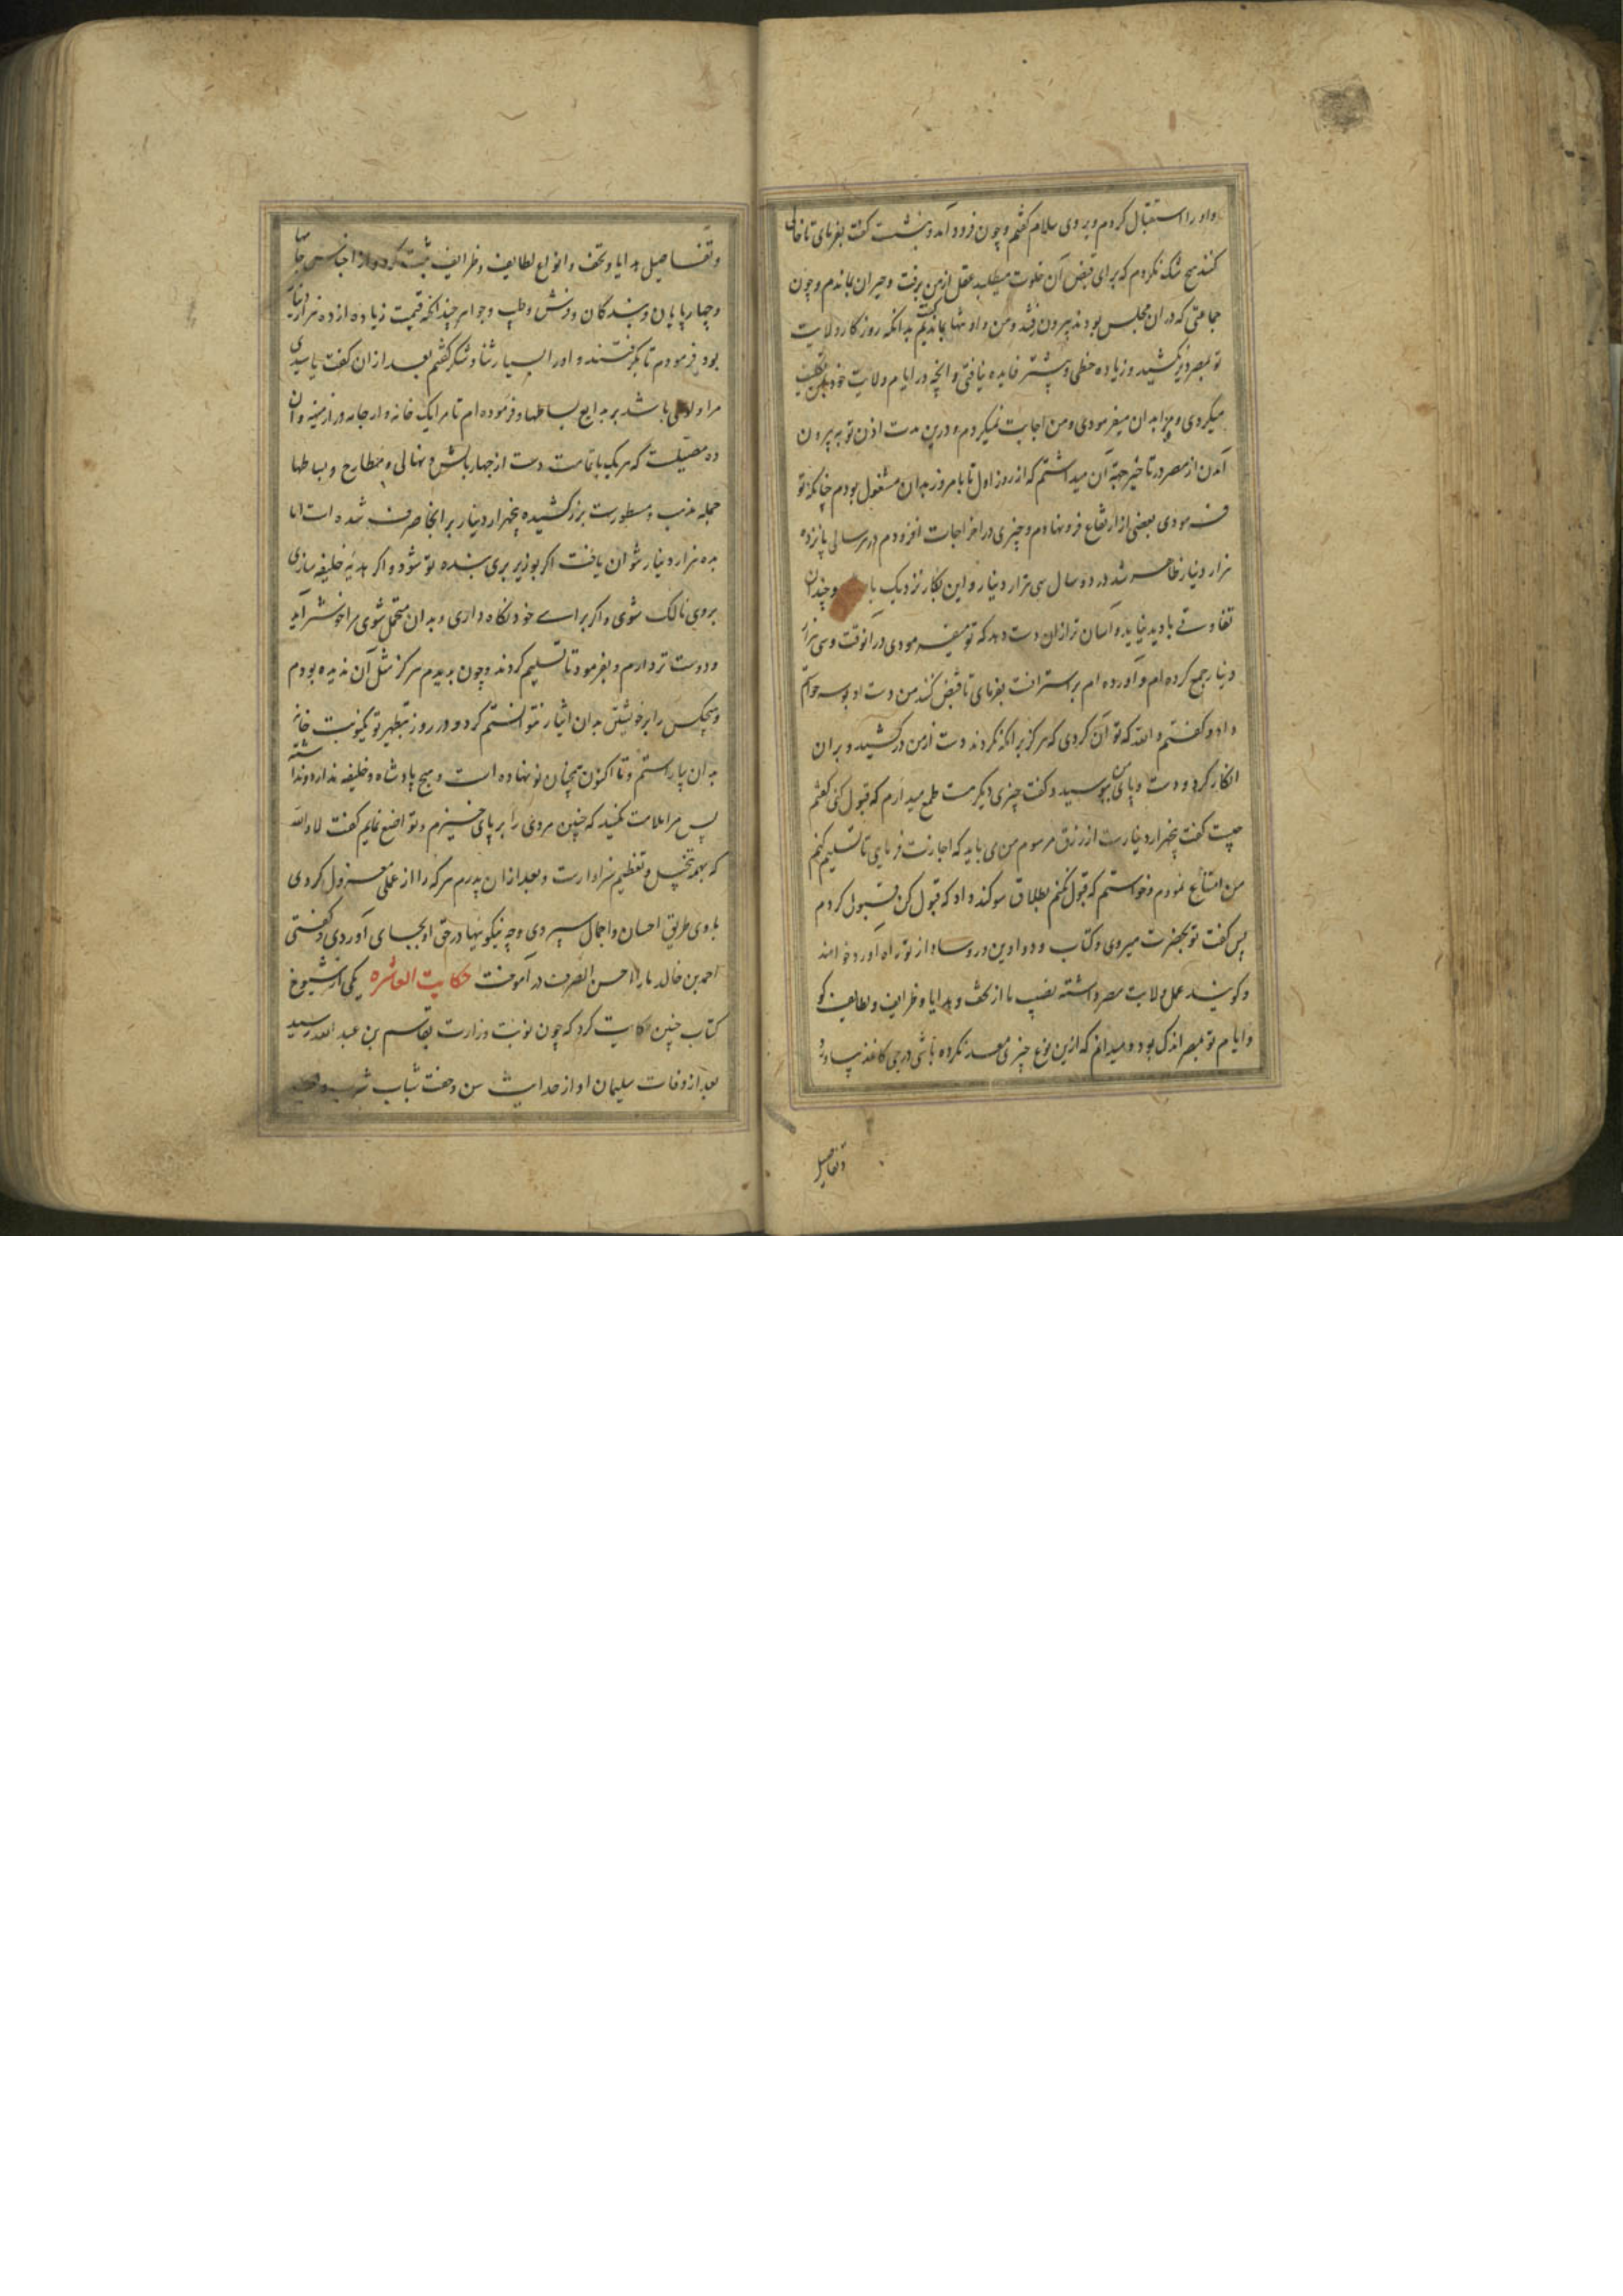 و او را استقبال کردم و بروی سلام گفتم و چون فرود آمد و بنشست گفت بفرمای تا خالی
کنند هیچ شک نکردم که برای قبض آن خلوت میطلبد عقل از من برفت و حیران بماندم و چون
جماعتی که در ان مجلس بودند بیرون رفتند و من و او تنها بماندیم گفت بدانکه روزگار ولایت
تو بمصر دیر نکشید و زیاده حظی و بیشتر فایده نیافتی و انچه در ایام ولایت خود از من
میکردی و مرا بدان میفرمودی و من اجابت نمیکردم و درین مدت اذن تو به بیرون
آمدن از مصر در تاخیر جهة آن میداشتم که از روز اول تا بامروز بدان مشغول بودم چنانکه تو
فرمودی بعضی از ارتفاع فرو نهادم و چیزی در اخراجات افزودم در هر سالی پانزده
هزار دینار ظاهر شد در دو سال سی هزار دینار و این بکار نزدیک با و چندان
تفاوتی بادید نیاید و آسان تر ازان دست دهد که تو میفرمودی در آنوقت و سی هزار
دینار جمع کرده ام و آورده ام بر استرانست بفرمای تا قبض کنند من دست او بوسه خواستم
داد و گفتم والله که تو آن کردی که هرگز برامکه نکردند دست از من درکشید و بران
انکار کرد و دست و پای من ببوسید و گفت چیزی دیگر هست طمع میدارم که قبول کنی گفتم
چیست گفت پنجهزار دینارست از رزق مرسوم من می باید که اجازت فرمایی تا تسلیم کنم
من امتناع نمودم و خواستم که قبول نکنم بطلاق سوکند داد که قبول کن قبول کردم
پس گفت تو بحضرت میروی و کتاب و دواوین و روسا از تو راه آورد خواهند
و گویند عمل ولایت مصر داشته نصیب ما از تحف و هدایا و ظرایف و لطایف کو
و ایام تو بمصر اندک بود و میدانم که ازین نوع چیزی معد نکرده باشی درجی کاغذ بیاورد
و تفاصیل
و تفاصیل هدایا و تحف و انواع لطایف و ظرایف ثبت کرده از اجناس جامها
و چهارپایان و بندگان و فرش و طیب و جواهر چندانکه قیمت زیاده از ده هزار دینار
بود فرمودم تا بگرفتند و او را بسیار ثنا و شکر گفتم بعد از ان گفت یا سیدی
مرا ولعی باشد بر بدایع بساطها و فرموده ام تا مرا یک خانه وار جامه در ارمینیه و آن
ده مصلیست که هر یک با تمامت دست از چهار بالش و نهالی و مطارح و بساطها
جمله مذهب و مسطورست بزر کشیده پنجهزار دینار بر انجا صرف شده است اما
بده هزار دینار نتوان یافت اگر بوزیر بری بنده تو شود و اگر هدیه خلیفه سازی
بروی مالک شوی و اگر برای خود نکاه داری و بدان متجمل شوی مرا خوشتر آید
و دوست تر دارم و بفرمود تا تسلیم کردند و چون بدیدم هرگز مثل آن ندیده بودم
و هیچکس را بر خویشتن بدان ایثار نتوانستم کرد و در روز تطهیر تو یکنوبت خانه
بدان بیاراستم و تا اکنون همچنان نو نهاده است و هیچ پادشاه و خلیفه ندارد و نداشته
پس مرا ملامت نکنید که چنین مردی را بر پای خیزم و تواضع نمایم گفت لا والله
که بهمه تبجیل و تعظیم سزاوارست و بعد از ان پدرم هر که را از عملی معزول کردی
با وی طریق احسان و اجمال سپردی و چه نیکوئیها در حق او بجای آوردی و گفتی
احمد بن خالد ما را احسن الصرف در آموخت حکایت العاشره یکی از شیوخ
کتاب چنین حکایت کرد که چون نوبت وزارت بقاسم بن عبد الله رسید
بعد از وفات سلیمان او از حداثت سن و خفت شباب شرب